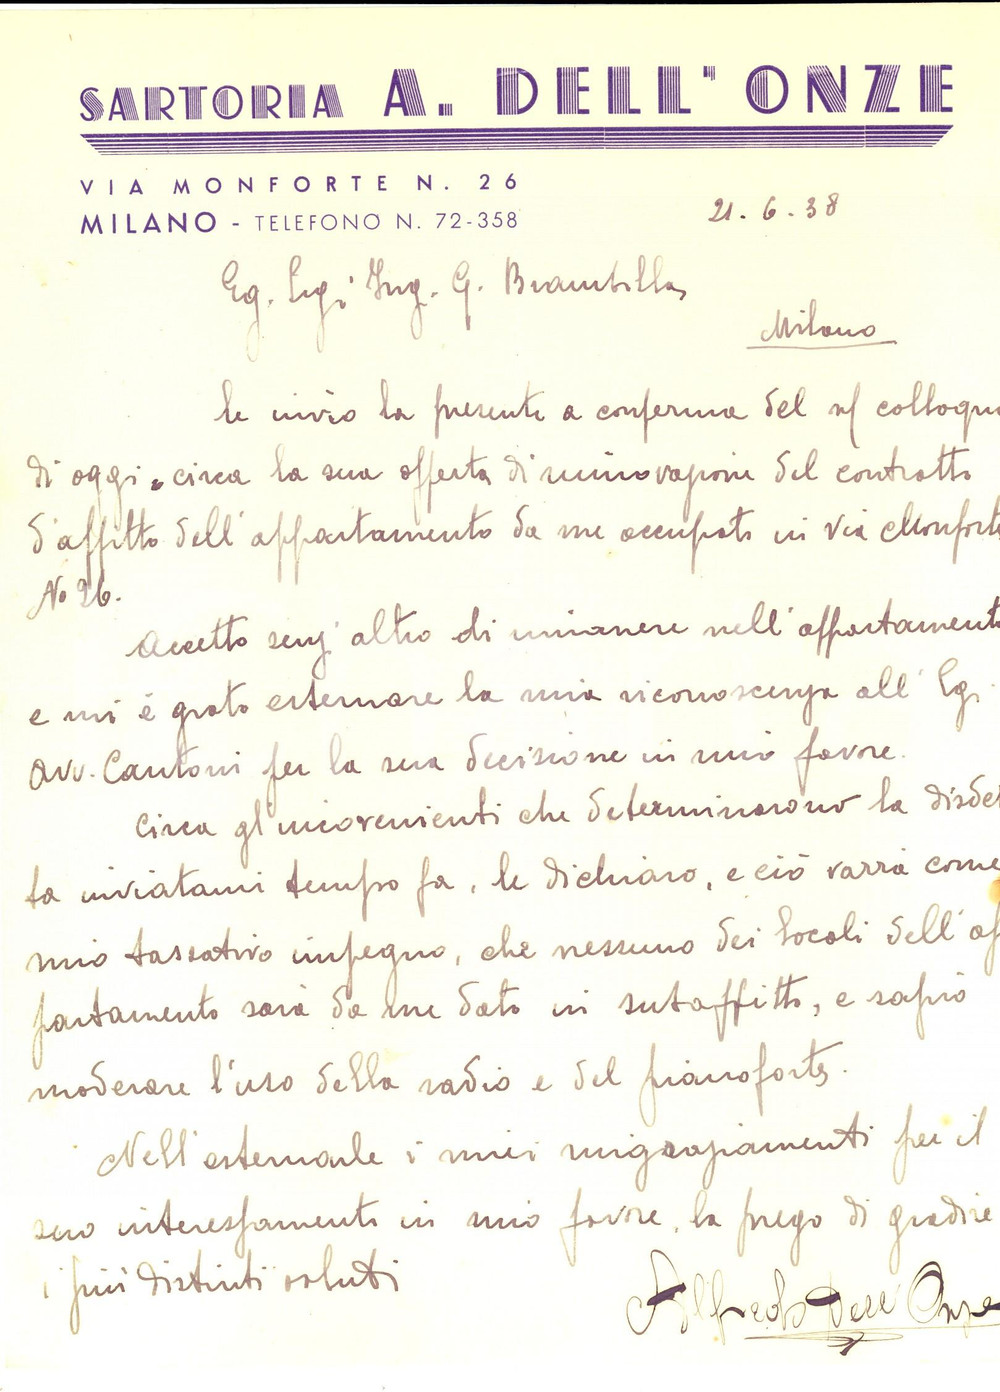 SARTORIA A. DELL'ONZE
VIA MONFORTE N. 26
MILANO - TELEFONO N. 72-358
21. 6. 38
Eg. Sig. Ing. G. Brambilla,
Milano
le invio la presente a conferma del ns/ colloquio
di oggi, circa la sua offerta di rinnovazione del contratto
d'affitto dell'appartamento da me occupato in Via Monforte
No 26.
Accetto senz'altro di rimanere nell'appartamento
e mi è grato esternare la mia riconoscenza all'Eg.
Avv. Cantoni per la sua decisione in mio favore.
Circa gl'incovenienti che determinarono la disdet
ta inviatami tempo fa, le dichiaro, e ciò varrà come
mio tassativo impegno, che nessuno dei locali dell'ap
partamento sarà da me dato in subaffitto, e saprò
moderare l'uso della radio e del pianoforte.
Nell'esternarle i miei ringraziamenti per il
suo interessamento in mio favore, la prego di gradire
i più distinti saluti
Alfredo Dell'Onze